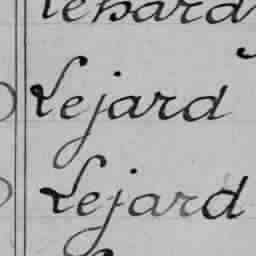 Lejard
Lejard